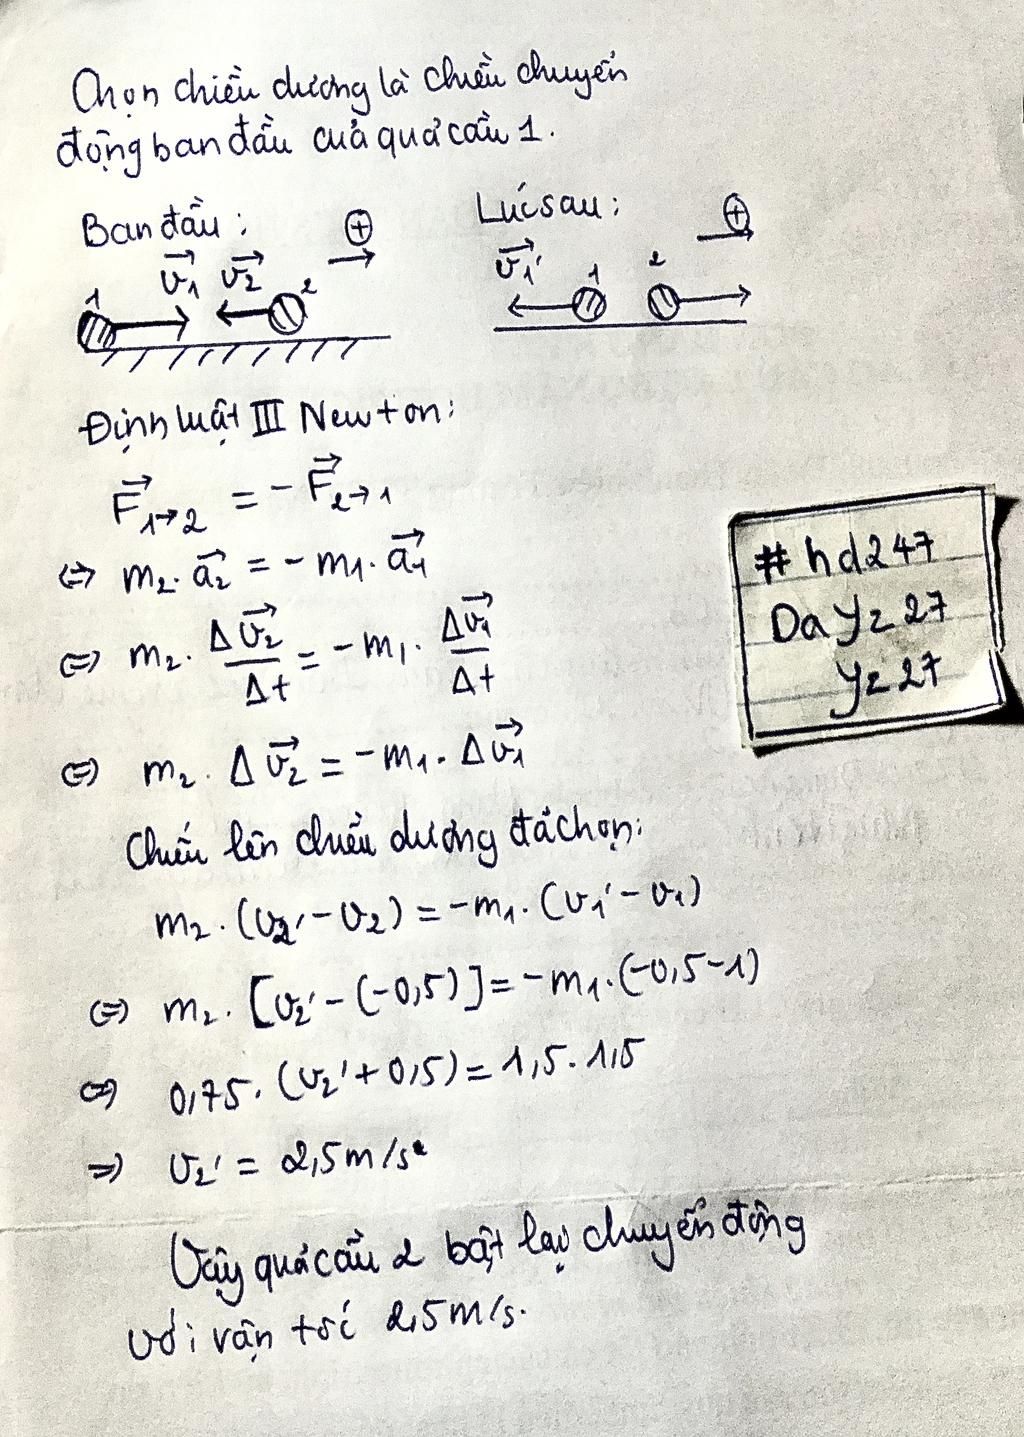 Chọn chiều dương là chiều chuyển
động ban đầu của quả cầu 1.
Ban đầu:
Lúc sau:
⊕
⊕
v⃗₁ v⃗₂
v⃗₁'
1
2
1
2
Định luật III Newton:
F⃗₁→₂ = -F⃗₂→₁
⇔ m₂. a⃗₂ = -m₁. a⃗₁
⇔ m₂. Δv⃗₂/Δt = -m₁. Δv⃗₁/Δt
⇔ m₂. Δv⃗₂ = -m₁. Δv⃗₁
Chiếu lên chiều dương đã chọn:
m₂. (v₂' - v₂) = -m₁. (v₁' - v₁)
⇔ m₂. [v₂' - (-0,5)] = -m₁. (-0,5-1)
⇔ 0,75. (v₂' + 0,5) = 1,5. 1,5
⇒ v₂' = 2,5m/s
Vậy quả cầu 2 bật lại chuyển động
với vận tốc 2,5m/s.
#hd247
Dayz27
yz27